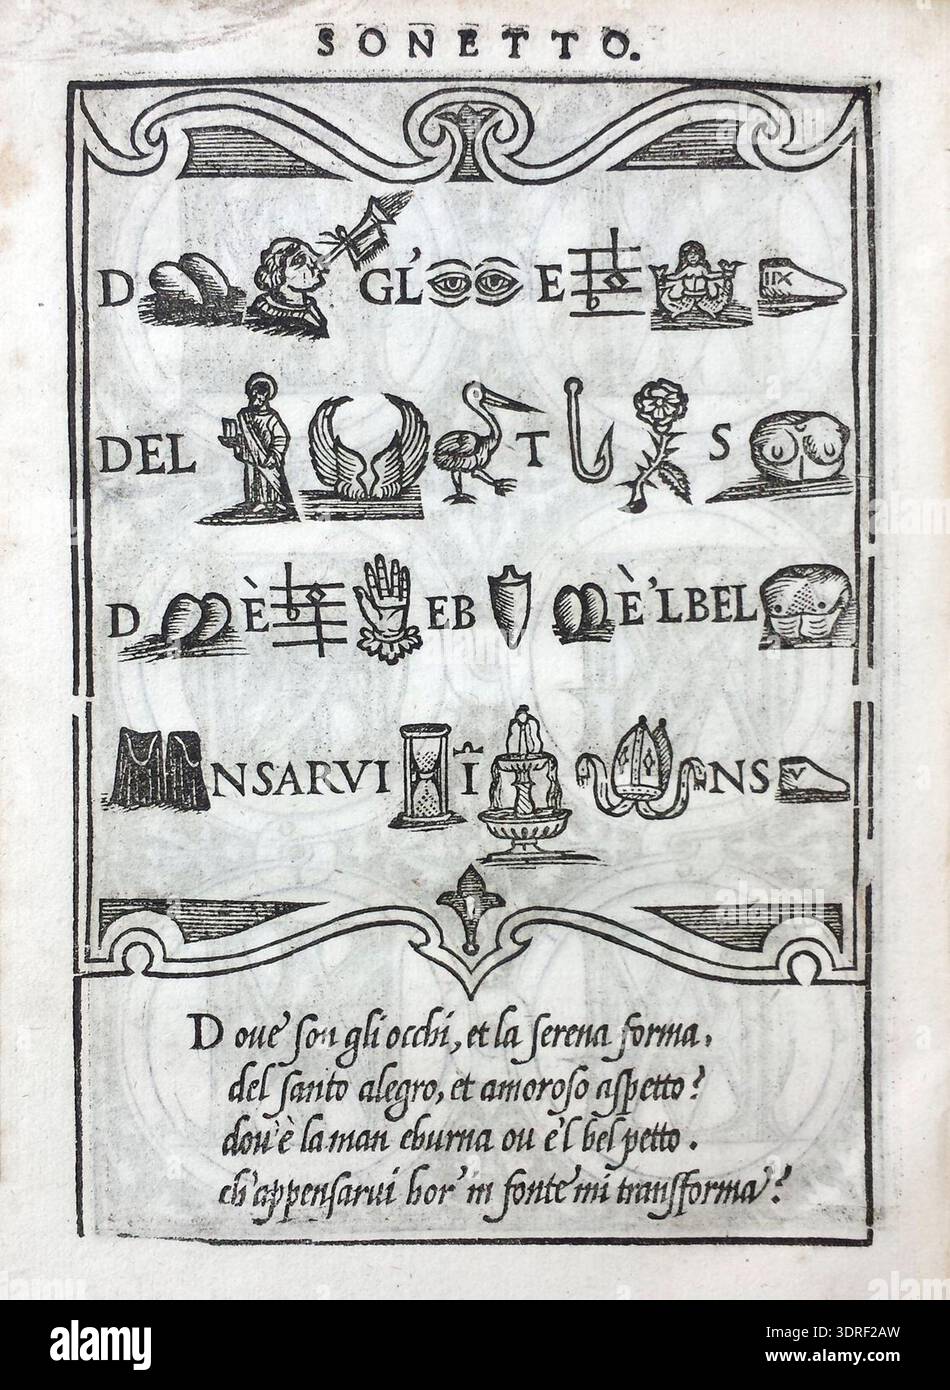 SONETTO.
D GL' E IIX
DEL T S
D È EB È 'LBEL
NSARVI I NS V
Doue son gli occhi, et la serena forma.
del santo alegro, et amoroso aspetto?
dou'è la man eburna ou è'l bel petto.
ch'appensarui hor' in fonte mi transforma?
alamy
alamy
Image ID: 3DRF2AW
www.alamy.com